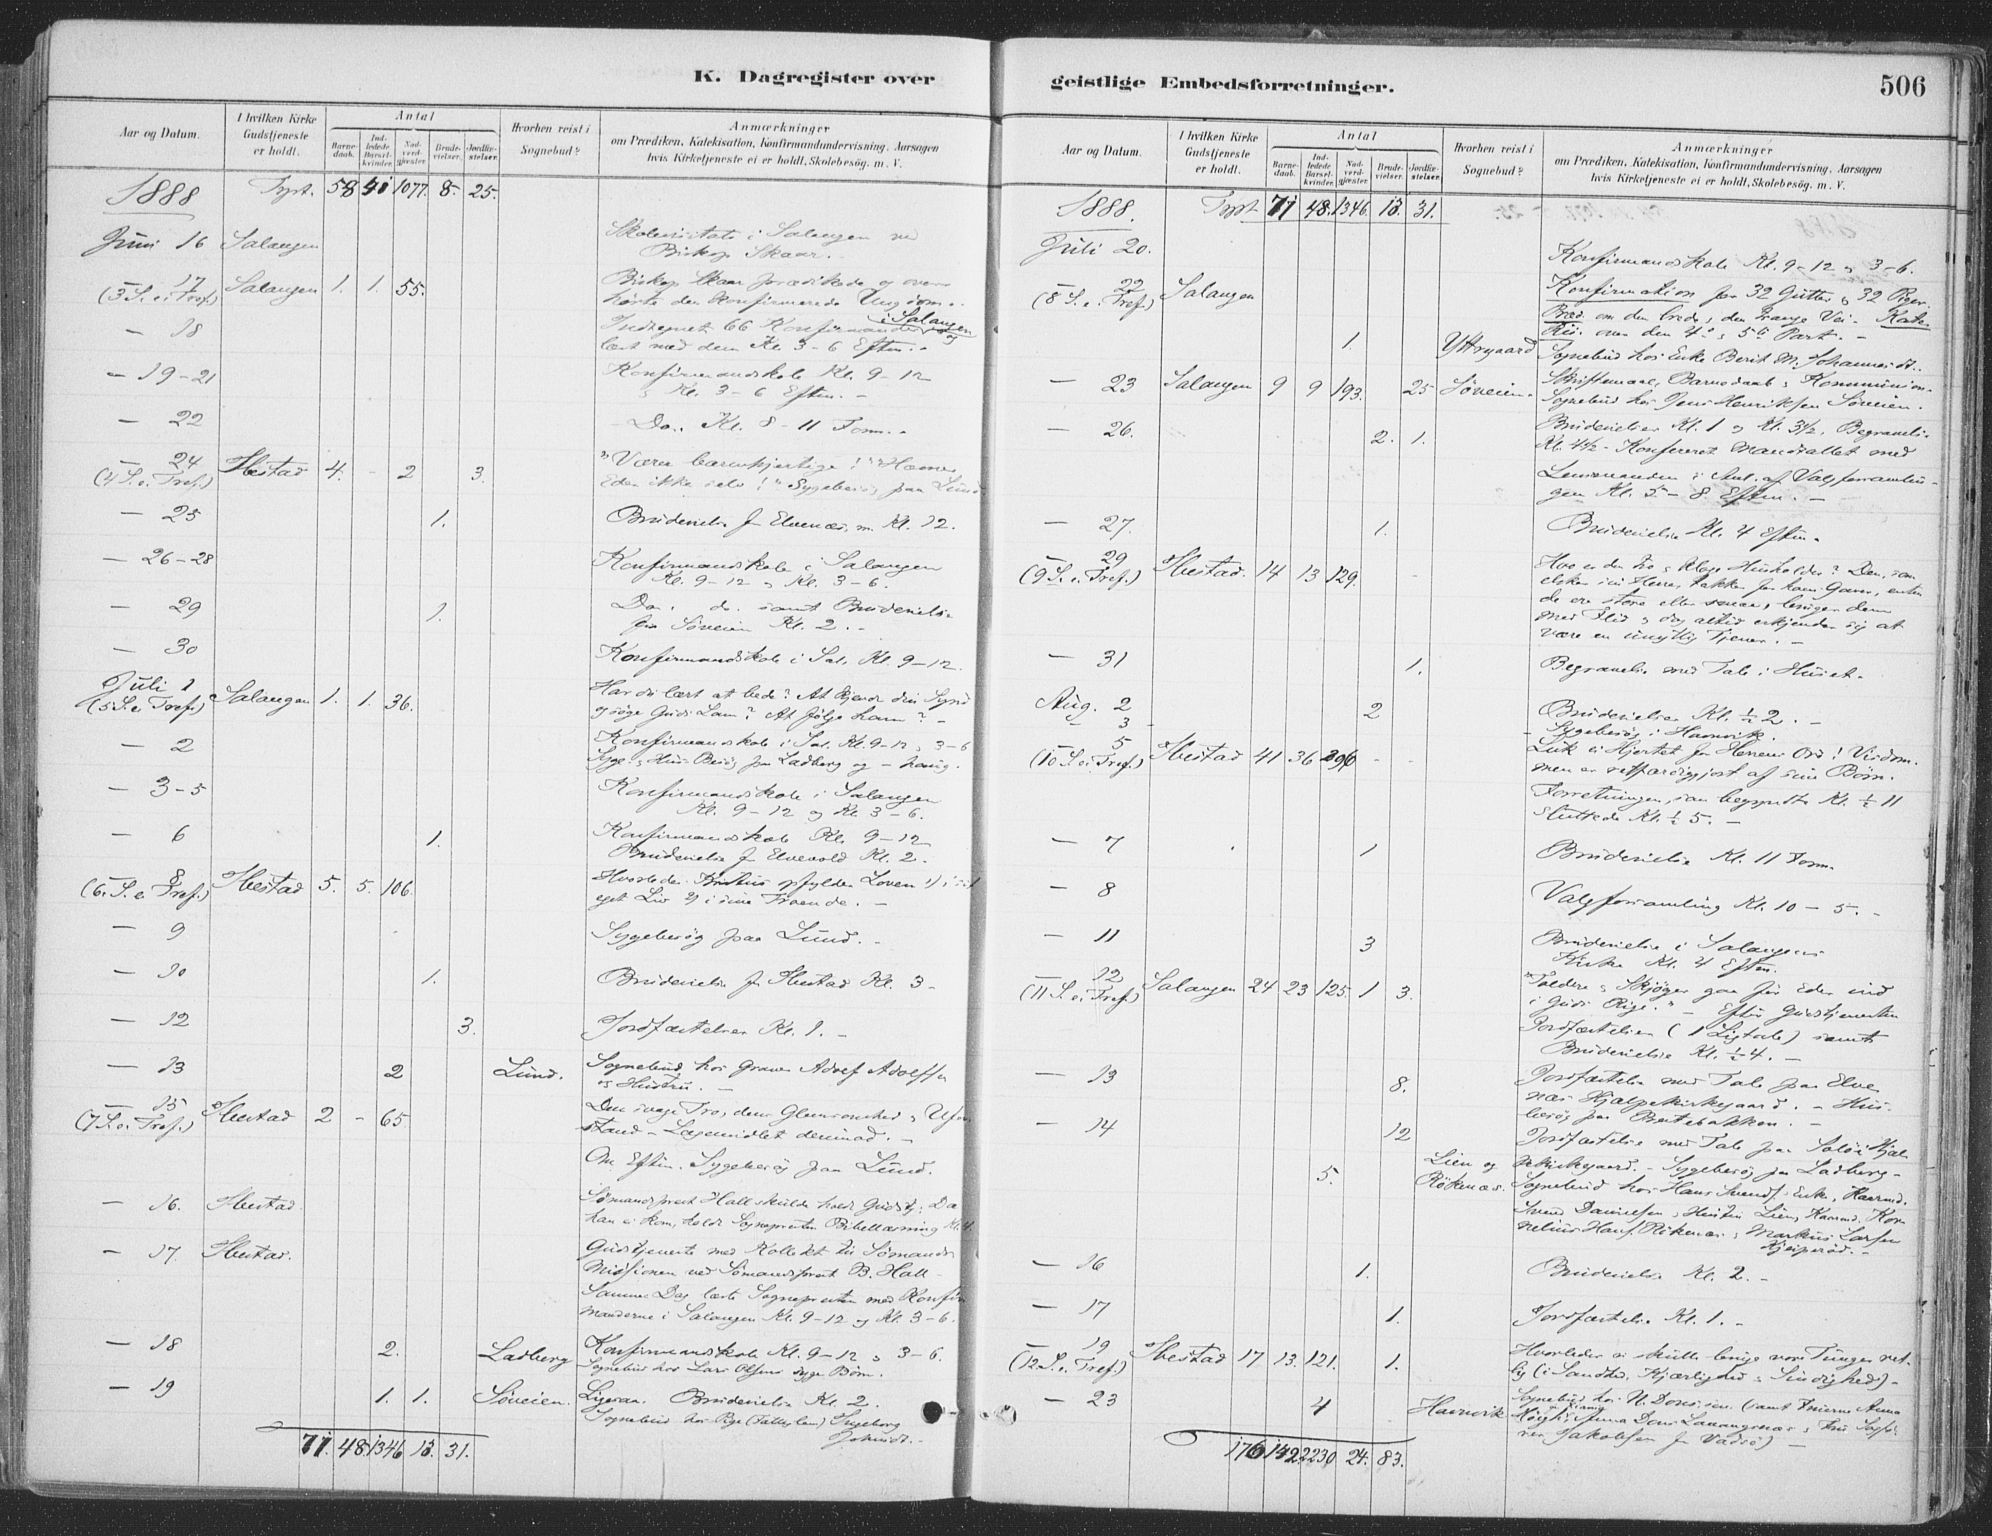 K. Dagregister over
Aar og Datum.
I hvilken Kirke Gudstjeneste er holdt.
Antal
Barne-daab.
Ind-ledede Barsel-kvinder.
Nad-verd-gjæster.
Brude-vielser.
Jordfæ-stelser.
Hvorhen reist i Sognebud?
Anmærkninger
om Prædiken, Katekisation, Konfirmandundervisning, Aarsagen
hvis Kirketjeneste ei er holdt, Skolebesøg. m. V.
1888 Tpst. 58 41 1077. 8. 25.
Juni 16 Salangen Skolevisitats i Salangen ved
Biskop Skaar.
17 Salangen 1. 1. 55. Biskop Skaar prædikede og over-
(3 S. e. Tref.) hørte den konfirmerede Ungdom.
i Salangen
— 18 Indtegnet 66 Konfirmander og
læst med dem Kl. 3-6 Eftm.
— 19-21 Konfirmandskole Kl. 9-12
& Kl. 3-6 Eftm. -
— 22 Do. Kl. 8-11 Form.
— 24 Ibestad 4. - 2 3. "Værer barmhjertige!" "Hævner
(4 S. e. Tref.) Eder ikke selv!" Sygebesøg paa Lund
— 25 1. Brudevielse fr Elvenæs m. Kl. 12.
— 26-28 Konfirmandskole i Salangen
Kl. 9-12 & Kl. 3-6.
— 29 1. Do. do. samt Brudevielse
fra Søveien Kl. 2. -
— 30 Konfirmandskole i Sal. Kl. 9-12.
Juli 1 Salangen 1. 1. 36. Har du lært at bede? At kjende din Synd
(5 S. e. Tref.) og søge Guds Lam? At følge ham? -
— 2 Konfirmandskole i Sal. Kl. 9-12 & 3-6
Syge & Hus Besøg paa Ladberg og
— 3-5 Konfirmandskole i Salangen
Kl. 9-12 og Kl. 3-6.
— 6 1. Konfirmandskole Kl. 9-12
Brudevielse fr Elvevold Kl. 2.
— 8 Ibestad 5. 5. 106. Hvorledes Kristus opfylder Loven 1) i sit
(6. S. e. Tref.) eget Liv 2) i sine Troende. -
— 9 Sygebesøg paa Lund.
— 10 1. Brudevielse fr Ibestad Kl. 3-
— 12 3. Jordfæstelser Kl. 1. -
— 13 2 Lund. Sognebud hos Adolf Adolfsen
og Hustru. —
— 15 Ibestad 2 - 65. Den svage Tro, dens Glemsomhed & Ufor-
(7 S. e. Tref.) stand - Lægemidlet derimod. -
Om Eftm. Sygebesøg paa Lund.
— 16. Ibestad Sømandsprest Hall skulde holdt Gudstj; Da
han ei kom, holdt Sognepresten Bibellæsning Kl. 4.
— 17. Ibestad. Gudstjeneste med Kollekt til Sømands
Missionen ved Sømandsprest B. Hall -
Samme Dag læste Sognepresten med Konfir-
manderne i Salangen Kl. 9-12 og Kl. 3-6.
— 18 2. Ladberg Konfirmandskole Kl. 9-12 & 3-6.
Sognebud hos Lars Olsens syge Børn.
— 19 1. 1. Søveien. Ligesaa. Brudevielse Kl. 2.
Sognebud hos Pige Ingeborg
71. 48. 1346 13. 31.
geistlige Embedsforretninger. 506
Aar og Datum.
I hvilken Kirke Gudstjeneste er holdt.
Antal
Barne-daab.
Ind-ledede Barsel-kvinder.
Nad-verd-gjæster.
Brude-vielser.
Jordfæ-stelser.
Hvorhen reist i Sognebud?
Anmærkninger
om Prædiken, Katekisation, Konfirmandundervisning, Aarsagen
hvis Kirketjeneste ei er holdt, Skolebesøg. m. V.
1888. Tpst 71 48. 1346. 13. 31.
Juli 20. Konfirmandskole Kl. 9-12 & 3-6.
— 22 Salangen Konfirmation for 32 Gutter & 32 Piger.
(8 S. e. Tref.) Præd. om den brede, den trange Vei. - Kate-
kis. over den 4de & 5te Part. -
1. Yttrgaard Sognebud hos Enke Berit M. Johannesd.
— 23 Salangen 9 9 193. 25 Søveien. Skriftemaal, Barnedaab & Kommunion.
Sognebud hos Jens Henriksen Søveien.
— 26. 2. 1. Brudevielser Kl. 1 og Kl. 3½. Begravelse
Kl. 4½ - Konfereret Mandtallet med
Lensmanden i Anl. af Valgforsamlin-
gen Kl. 5 - 8 Eftm. -
— 27. 1. Brudevielse Kl. 4 Eftm.
— 29 Ibestad. 14 13 129. - Hvo er den tro & kloge Husholder? Den, som
(9 S. e. Tref.) elsker sin Herre, takker for hans Gaver, enten
de ere store eller smaa, bruger dem
med Flid & dog altid erkjender sig at
være en unyttig Tjener. -
— 31 1. Begravelse med Tale i Huset.
Aug. 2 2 Brudevielser Kl. ½ 2. -
— 3 Sygebesøg i Havnvik.
— 5 Ibestad 41 36 296 - - Luk ei Hjertet for Herrens Ord! Visdom-
(10 S. e. Tref.) men er retfærdiggjort af sine Børn.
Forretningen, som begyndte Kl. ½ 11
sluttede Kl. ½ 5. -
— 7 1 Brudevielse Kl. 11 Form.
— 8 Valgforsamling Kl. 10 - 5. -
— 11 3 Brudevielse i Salangens
Kirke Kl. 4 Eftm.
— 12 Salangen 24 23 125. 1 3. "Toldere & Skjøger gaa før Eder ind
(11 S. e. Tref.) i Guds Rige." - Efter Gudstjenesten
Jordfæstelser (1 Ligtale) samt
Brudevielse Kl. ½ 4. -
— 13 8. Jordfæstelse med Tale paa Elve-
næs Hjælpekirkegaard. - Hus-
besøg paa
— 14 12 Jordfæstelse med Tale paa Hjæl-
5. Lien og pekirkegaard. - Sygebesøg paa Ladberg -
Rökenæs. Sognebud hos Hans Enke,
Danielsen & Hustru Lien, Kor-
nelius Hans. Rökenæs & Markus Larsen
— 16 1. Brudevielse Kl. 2. -
— 17 1. Jordfæstelse Kl. 1. -
— 19 Ibestad 17 13. 121. 1. Hvorledes vi skulle bruge vore Tunger ret-
(12 S. e. Tref.) lig (i Sandhed, Kjærlighed & Sindighed) -
— 23 4 Havnvik Sognebud hos N. (samt Anna
Jakobsen fr Vadsø) —
176 142 2230 24. 83.